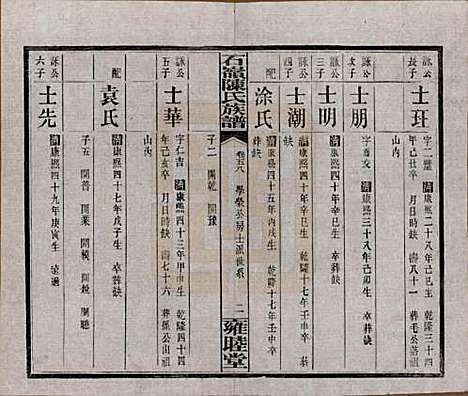 詠公長子
士班
字一璽 清康熙二十八年己巳生 乾隆三十四
年己丑卒 月日時缺 壽八十一 葬毛公山
詠公次子
士朋
字 清康熙三十八年己卯生 卒葬缺
詠公三子
士明
清康熙四十年辛巳生 卒葬缺
詠公四子
士潮
清康熙四十年辛巳生 乾隆十七年壬申卒
葬缺
配
涂氏
清康熙四十五年丙戌生 乾隆十七年壬申卒
葬缺
子二 開乾 開豫
石嶺陳氏族譜
卷五八 學榮公房士派世系
二
雍睦堂
詠公五子
士華
字仁吉 清康熙四十三年甲申生 乾隆四十四
年己亥卒 月日時缺 壽七十六 葬孫公山胡
山內
配
袁氏
清康熙四十七年戊子生 卒葬缺
子五 開善 開來 開模 開銳 開聰
詠公六子
士先
清康熙四十九年庚寅生